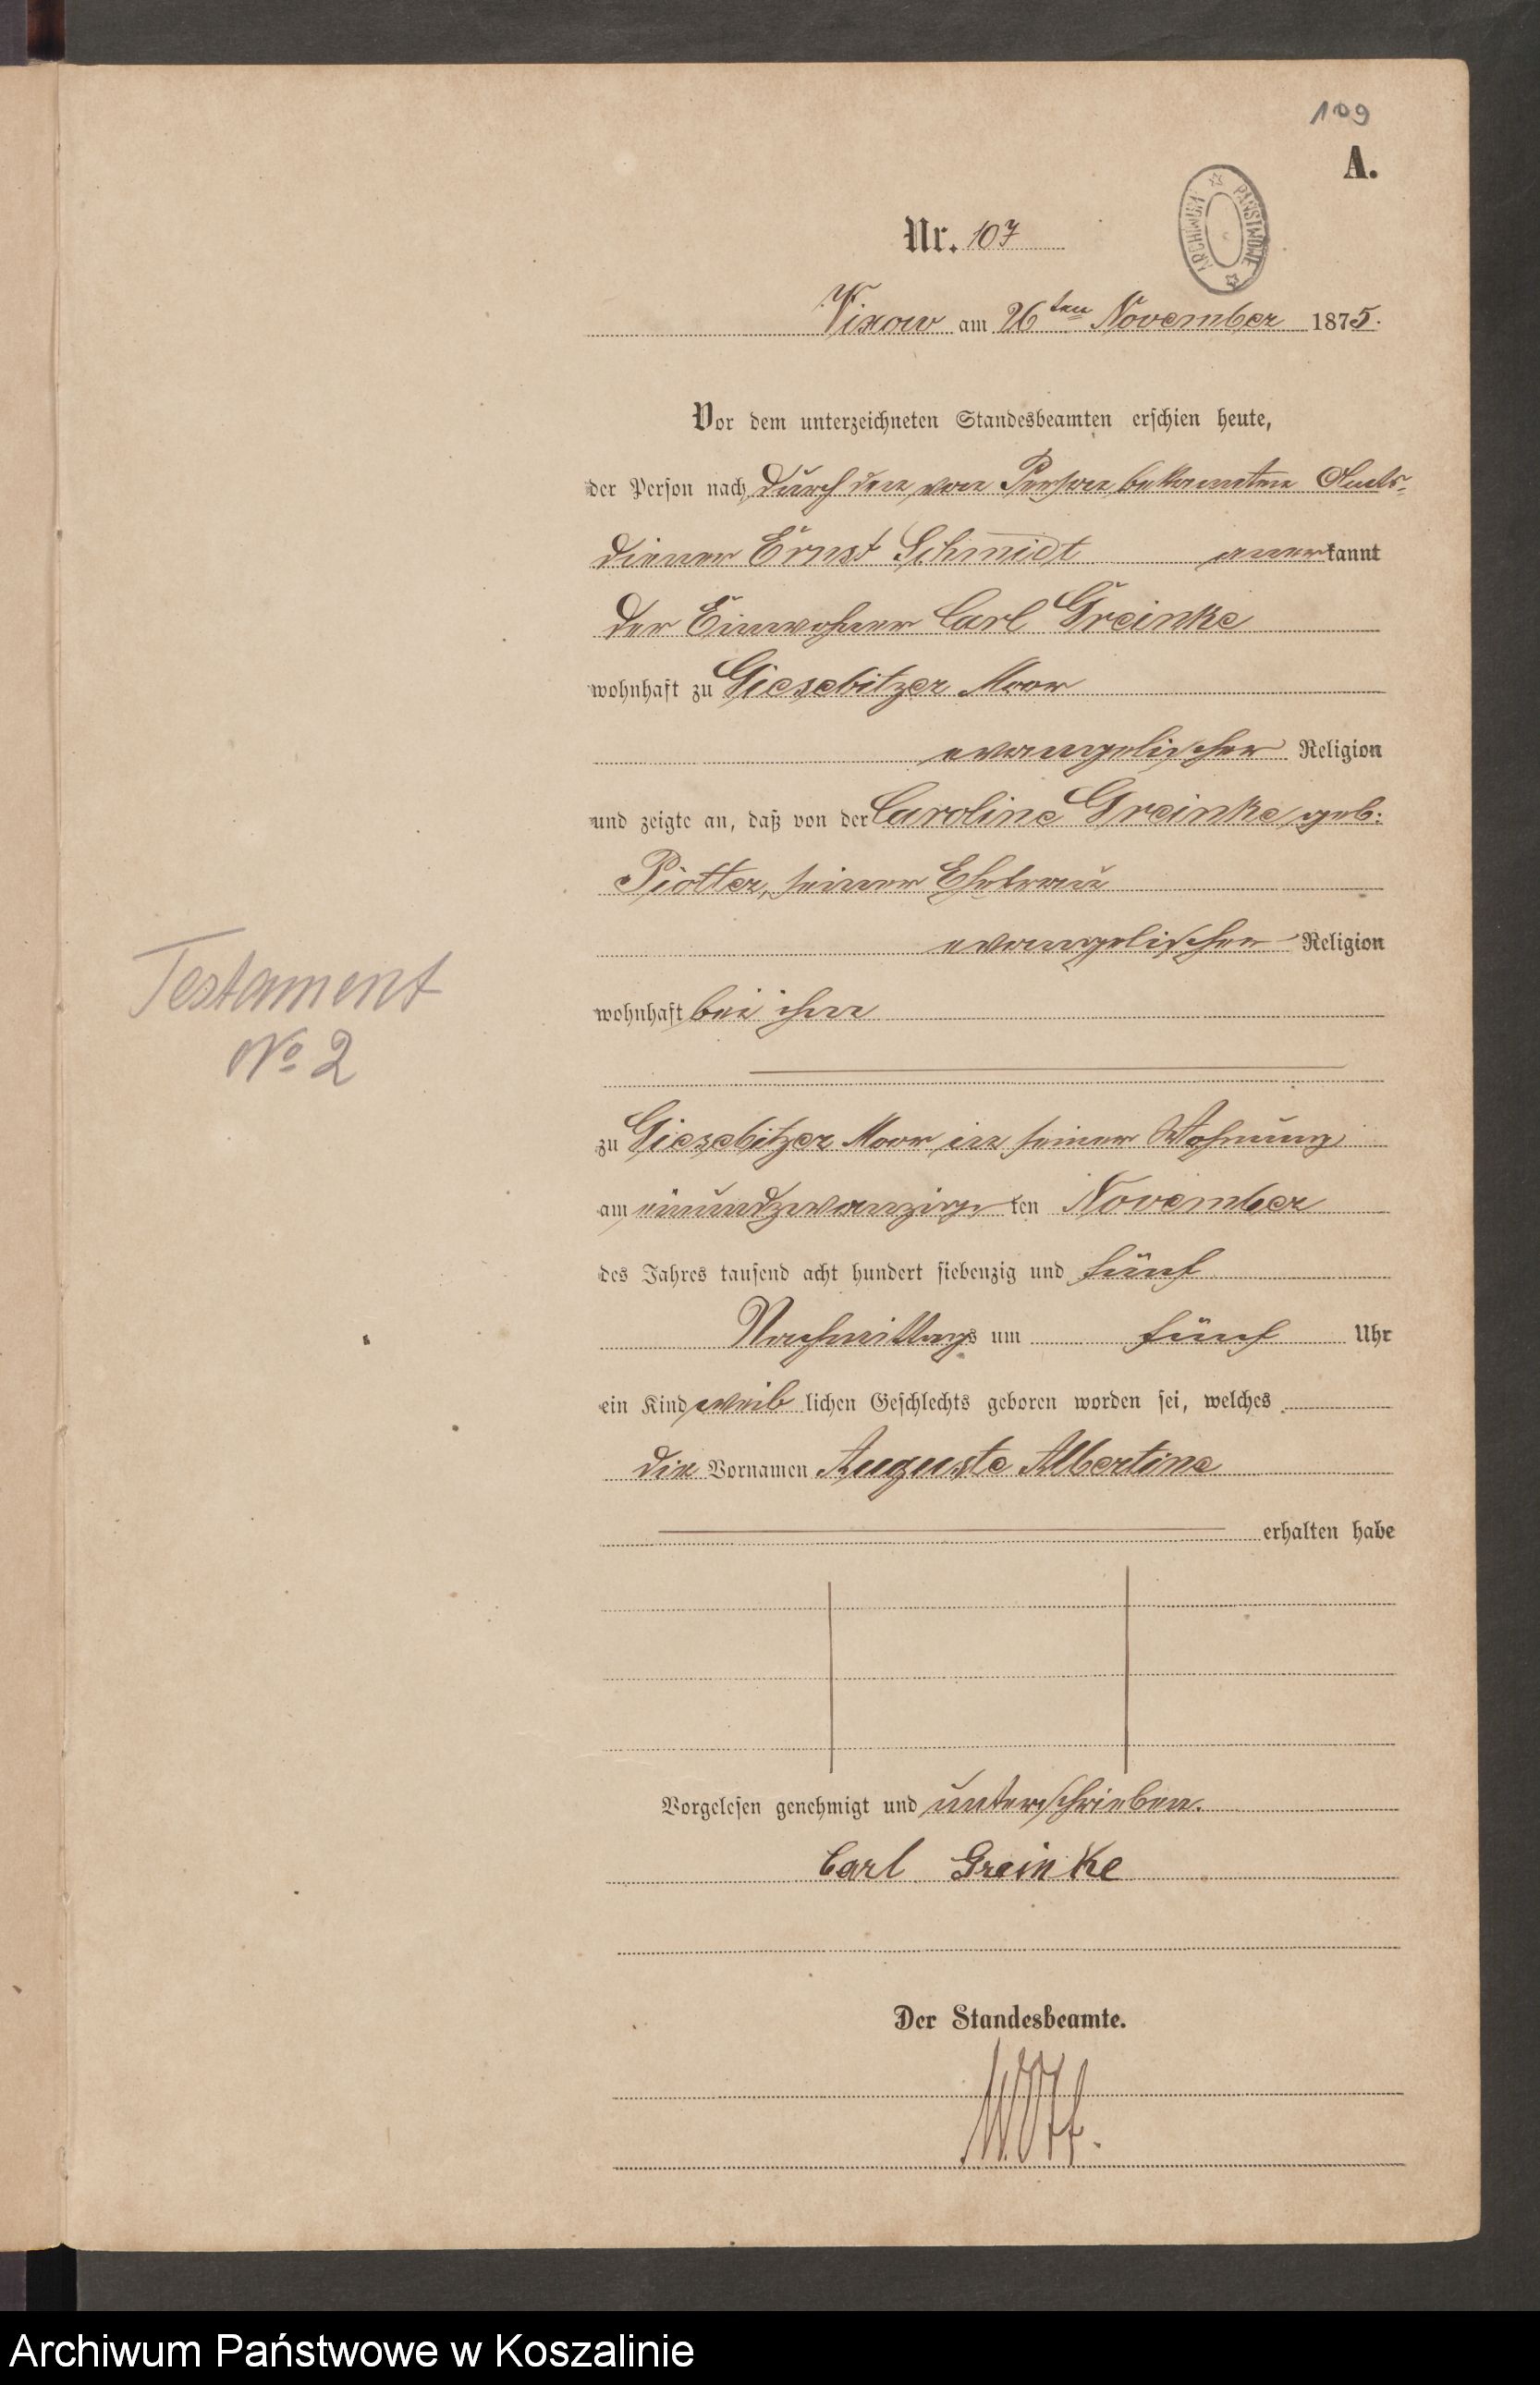 109
A.
ARCHIWUM PAŃSTWOWE
Nr. 107
Vixow am 26ten November 1875.
Vor dem unterzeichneten Standesbeamten erschien heute,
der Person nach durch den von Person bekannten Amts-
diener Ernst Schmidt anerkannt
der Einwohner Carl Greinke
wohnhaft zu Giesebitzer Moor
evangelischer Religion
und zeigte an, daß von der Caroline Greinke, geb.
Piotter, seiner Ehefrau
evangelischer Religion
wohnhaft bei ihm
Testament
No 2
zu Giesebitzer Moor in seiner Wohnung
am einundzwanzig ten November
des Jahres tausend acht hundert siebenzig und fünf
Nachmittags um fünf Uhr
ein Kind weib lichen Geschlechts geboren worden sei, welches
die Vornamen Auguste Albertine
erhalten habe
Vorgelesen genehmigt und unterschrieben.
Carl Greinke
Der Standesbeamte.
Archiwum Państwowe w Koszalinie